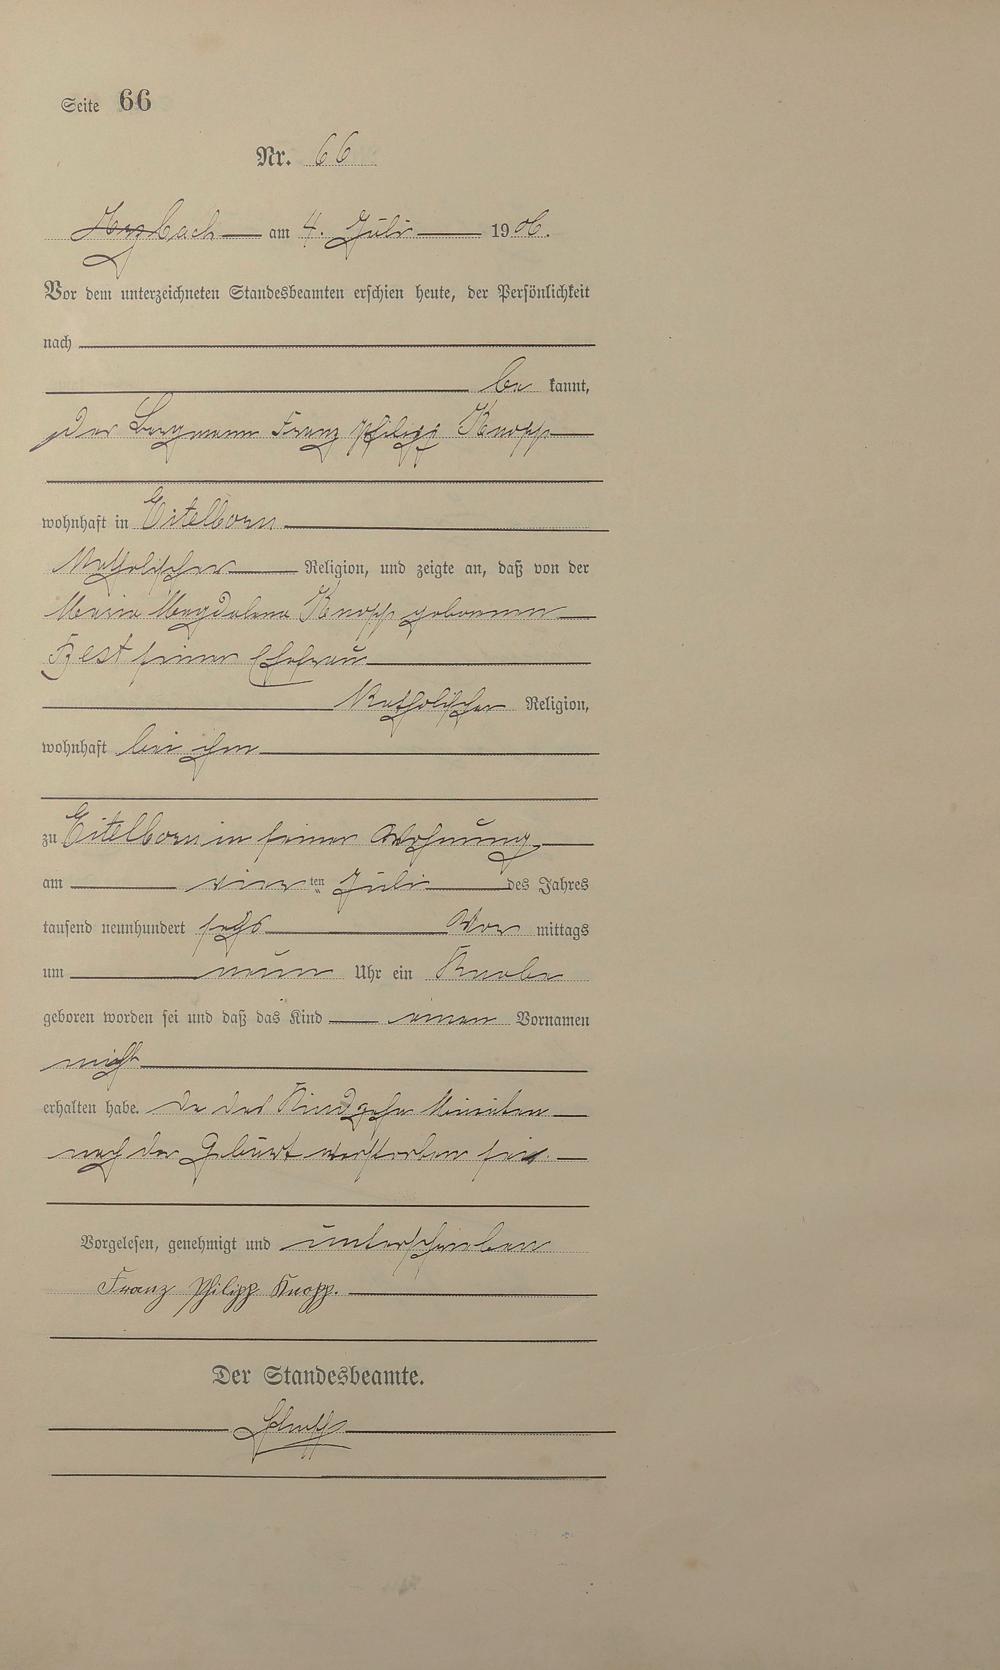 Seite 66
Nr. 66
am 4. Juli 1906.
Vor dem unterzeichneten Standesbeamten erschien heute, der Persönlichkeit
nach
be kannt,
der Bergmann Franz Philipp Knopp
wohnhaft in Eitelborn
Katholischer Religion, und zeigte an, daß von der
Maria Magdalena Knopp geborenen
Best seiner Ehefrau
Katholischer Religion,
wohnhaft bei ihm
zu Eitelborn in seiner Wohnung
am vierten Juli des Jahres
tausend neunhundert sechs Vor mittags
um neun Uhr ein Knabe
geboren worden sei und daß das Kind einen Vornamen
nicht
erhalten habe. da das Kind zehn Minuten
nach der Geburt verstorben sei.
Vorgelesen, genehmigt und unterschrieben
Franz Philipp Knopp.
Der Standesbeamte.